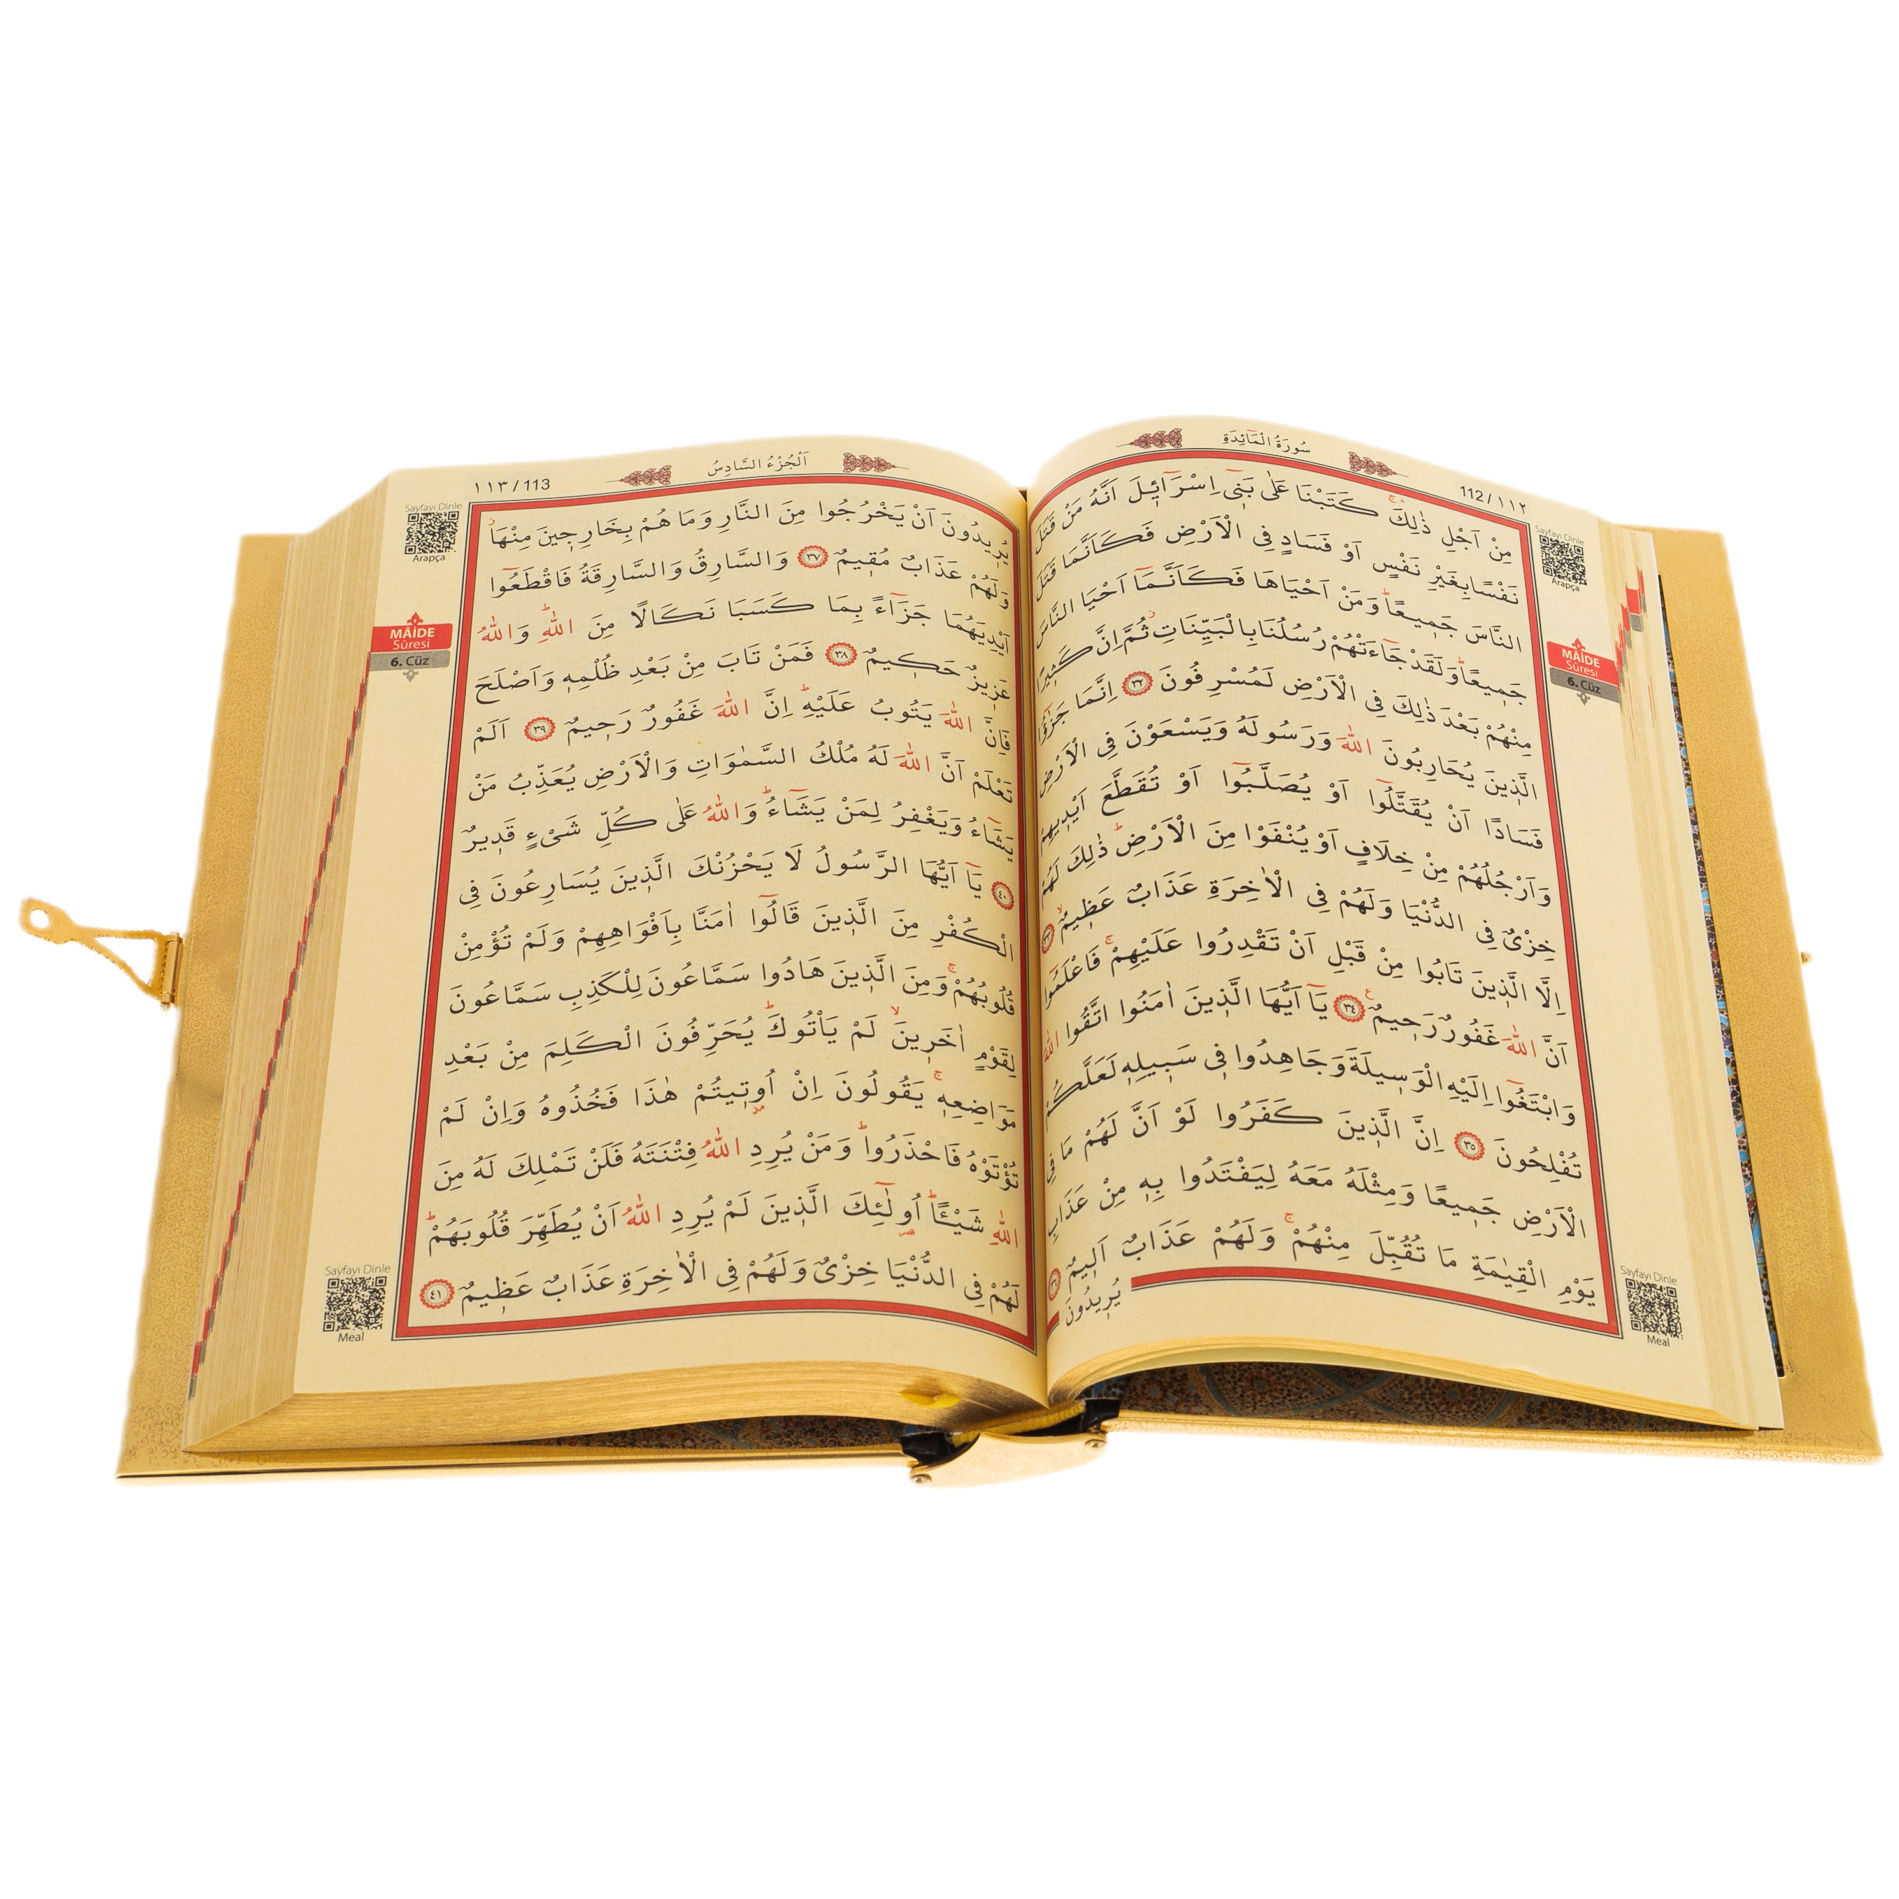 سُورَةُ الْمَائِدَةِ
112 / ١١٢
Sayfayı Dinle
Arapça
MÂİDE
Sûresi
6. Cüz
مِنْ اَجْلِ ذٰلِكَۚ كَتَبْنَا عَلٰى بَنٓى اِسْرَٓائٖلَ اَنَّهُ مَنْ قَتَلَ
نَفْسًا بِغَيْرِ نَفْسٍ اَوْ فَسَادٍ فِى الْاَرْضِ فَكَاَنَّمَا قَتَلَ
النَّاسَ جَمٖيعًاؕ وَمَنْ اَحْيَاهَا فَكَاَنَّمَٓا اَحْيَا النَّاسَ
جَمٖيعًاؕ وَلَقَدْ جَٓاءَتْهُمْ رُسُلُنَا بِالْبَيِّنَاتِؗ ثُمَّ اِنَّ كَثٖيرًا
مِنْهُمْ بَعْدَ ذٰلِكَ فِى الْاَرْضِ لَمُسْرِفُونَ ٣٢ اِنَّمَا جَزٰٓؤُا
الَّذٖينَ يُحَارِبُونَ اللّٰهَ وَرَسُولَهُ وَيَسْعَوْنَ فِى الْاَرْضِ
فَسَادًا اَنْ يُقَتَّلُٓوا اَوْ يُصَلَّبُٓوا اَوْ تُقَطَّعَ اَيْدٖيهِمْ
وَاَرْجُلُهُمْ مِنْ خِلَافٍ اَوْ يُنْفَوْا مِنَ الْاَرْضِؕ ذٰلِكَ لَهُمْ
خِزْىٌ فِى الدُّنْيَا وَلَهُمْ فِى الْاٰخِرَةِ عَذَابٌ عَظٖيمٌۙ ٣٣
اِلَّا الَّذٖينَ تَابُوا مِنْ قَبْلِ اَنْ تَقْدِرُوا عَلَيْهِمْۚ فَاعْلَمُٓوا
اَنَّ اللّٰهَ غَفُورٌ رَحٖيمٌ ٣٤ يَٓا اَيُّهَا الَّذٖينَ اٰمَنُوا اتَّقُوا اللّٰهَ
وَابْتَغُٓوا اِلَيْهِ الْوَسٖيلَةَ وَجَاهِدُوا فٖى سَبٖيلِهٖ لَعَلَّكُمْ
تُفْلِحُونَ ٣٥ اِنَّ الَّذٖينَ كَفَرُوا لَوْ اَنَّ لَهُمْ مَا فِى
الْاَرْضِ جَمٖيعًا وَمِثْلَهُ مَعَهُ لِيَفْتَدُوا بِهٖ مِنْ عَذَابِ
يَوْمِ الْقِيٰمَةِ مَا تُقُبِّلَ مِنْهُمْۚ وَلَهُمْ عَذَابٌ اَلٖيمٌ ٣٦
يُرٖيدُونَ
Sayfayı Dinle
Meal
اَلْجُزْءُ السَّادِسُ
١١٣ / 113
Sayfayı Dinle
Arapça
MÂİDE
Sûresi
6. Cüz
يُرٖيدُونَ اَنْ يَخْرُجُوا مِنَ النَّارِ وَمَا هُمْ بِخَارِجٖينَ مِنْهَاؗ
وَلَهُمْ عَذَابٌ مُقٖيمٌ ٣٧ وَالسَّارِقُ وَالسَّارِقَةُ فَاقْطَعُٓوا
اَيْدِيَهُمَا جَزَٓاءً بِمَا كَسَبَا نَكَالًا مِنَ اللّٰهِؕ وَاللّٰهُ
عَزٖيزٌ حَكٖيمٌ ٣٨ فَمَنْ تَابَ مِنْ بَعْدِ ظُلْمِهٖ وَاَصْلَحَ
فَاِنَّ اللّٰهَ يَتُوبُ عَلَيْهِؕ اِنَّ اللّٰهَ غَفُورٌ رَحٖيمٌ ٣٩ اَلَمْ
تَعْلَمْ اَنَّ اللّٰهَ لَهُ مُلْكُ السَّمٰوَاتِ وَالْاَرْضِ يُعَذِّبُ مَنْ
يَشَٓاءُ وَيَغْفِرُ لِمَنْ يَشَٓاءُؕ وَاللّٰهُ عَلٰى كُلِّ شَىْءٍ قَدٖيرٌ
٤٠ يَٓا اَيُّهَا الرَّسُولُ لَا يَحْزُنْكَ الَّذٖينَ يُسَارِعُونَ فِى
الْكُفْرِ مِنَ الَّذٖينَ قَالُٓوا اٰمَنَّا بِاَفْوَاهِهِمْ وَلَمْ تُؤْمِنْ
قُلُوبُهُمْۚ وَمِنَ الَّذٖينَ هَادُوا سَمَّاعُونَ لِلْكَذِبِ سَمَّاعُونَ
لِقَوْمٍ اٰخَرٖينَۙ لَمْ يَاْتُوكَؕ يُحَرِّفُونَ الْكَلِمَ مِنْ بَعْدِ
مَوَاضِعِهٖۚ يَقُولُونَ اِنْ اُوتٖيتُمْ هٰذَا فَخُذُوهُ وَاِنْ لَمْ
تُؤْتَوْهُ فَاحْذَرُواؕ وَمَنْ يُرِدِ اللّٰهُ فِتْنَتَهُ فَلَنْ تَمْلِكَ لَهُ مِنَ
اللّٰهِ شَيْـًٔاؕ اُو۬لٰٓئِكَ الَّذٖينَ لَمْ يُرِدِ اللّٰهُ اَنْ يُطَهِّرَ قُلُوبَهُمْؕ
لَهُمْ فِى الدُّنْيَا خِزْىٌ وَلَهُمْ فِى الْاٰخِرَةِ عَذَابٌ عَظٖيمٌ ٤١
Sayfayı Dinle
Meal